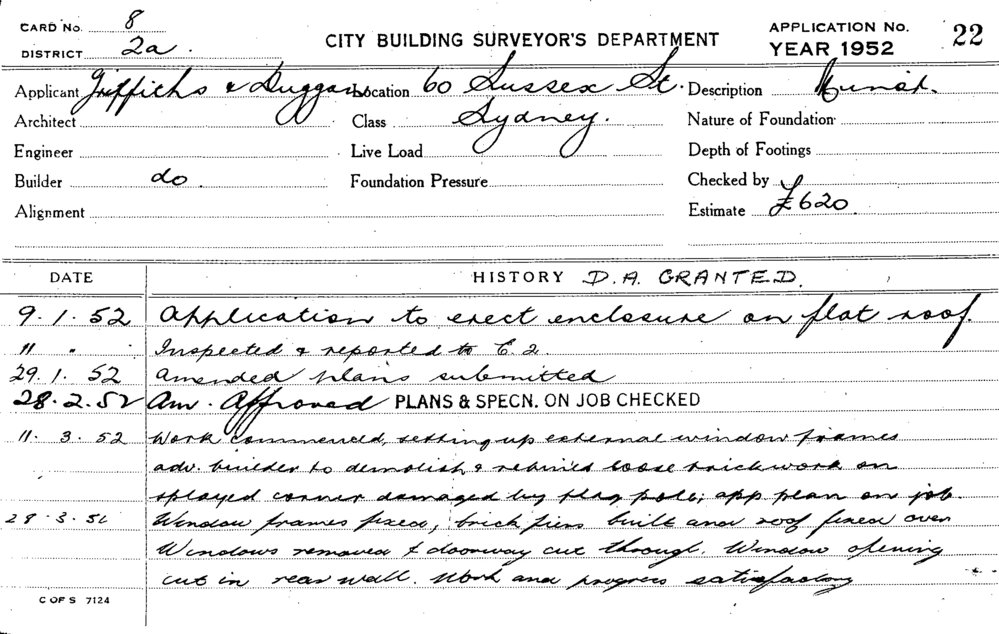 CARD No. 8
DISTRICT 2a.
CITY BUILDING SURVEYOR'S DEPARTMENT
APPLICATION No. 22
YEAR 1952
Applicant Griffiths & Duggan Location 60 Sussex St. Description
Architect Class Sydney. Nature of Foundation
Engineer Live Load Depth of Footings
Builder do. Foundation Pressure Checked by
Alignment Estimate £620.
DATE HISTORY D.A. GRANTED.
9.1.52 Application to erect enclosure on flat roof.
11 " " Inspected & reported to E.2.
29.1.52 Amended plans submitted
28.2.52 Am. Approved PLANS & SPECN. ON JOB CHECKED
11.3.52 Work commenced, setting up external window frames
adv. builder to demolish & rebuild loose brickwork on
splayed corner damaged by flag pole; app plan on job.
28.3.52 Window frames fixed, brick piers built and roof fixed over
Windows removed & doorway cut through. Window opening
cut in rear wall. Work and progress satisfactory
C OF S 7124